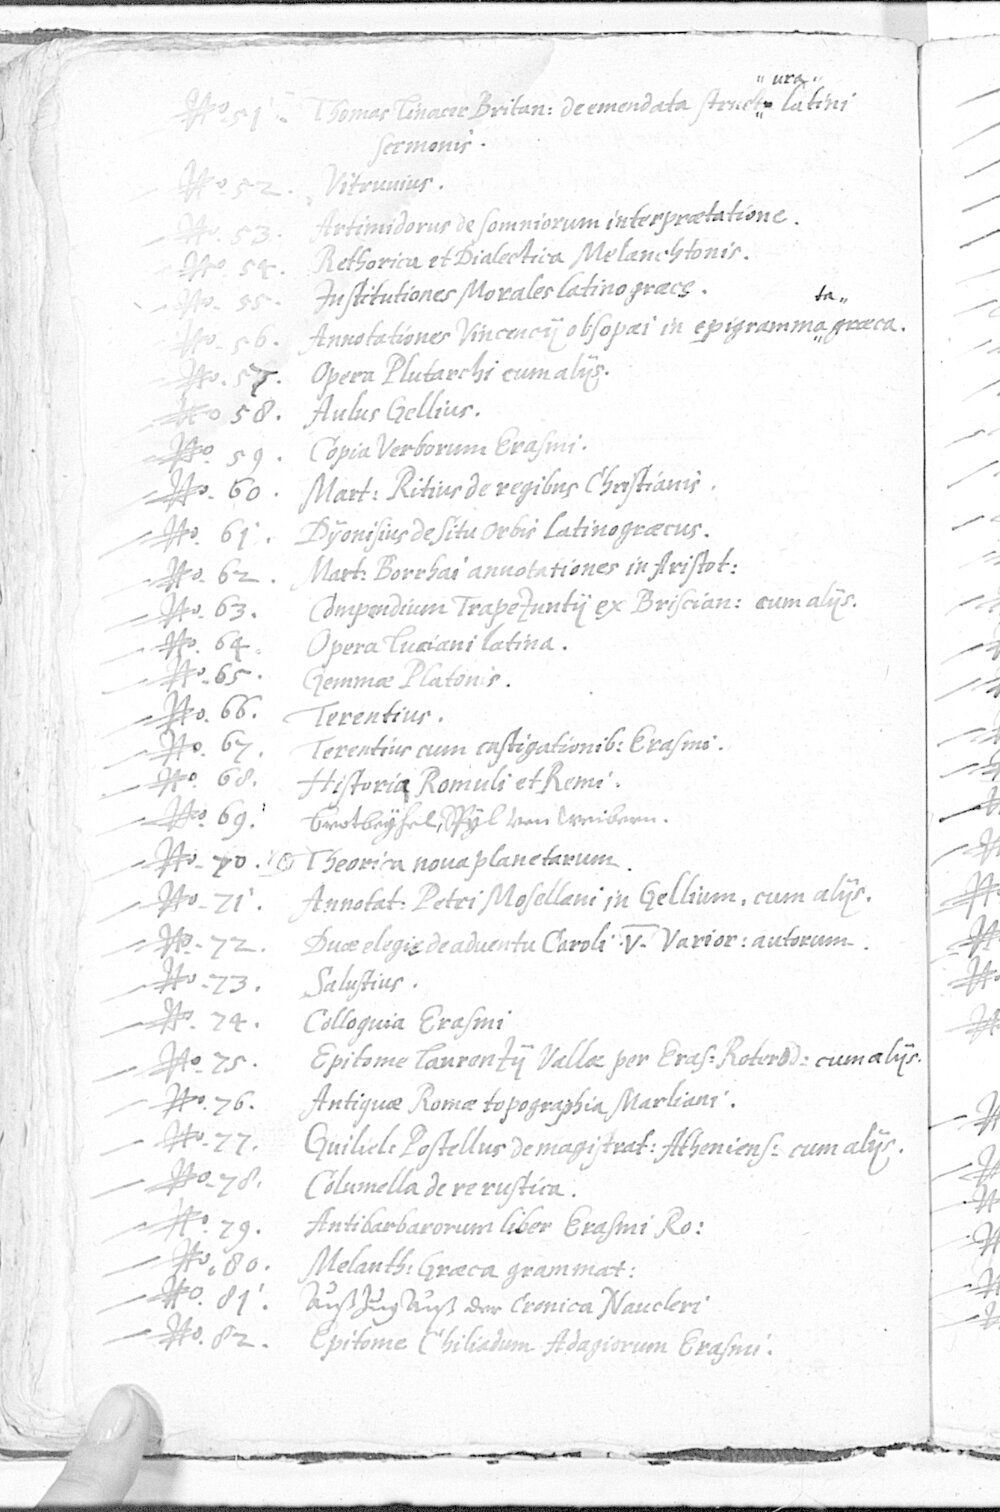 No 51. Thomas Linacer Britan: de emendata structura latini
sermonis.
No 52. Vitruuius.
No. 53. Artimidorus de somniorum interprætatione.
No. 54. Rethorica et Dialectica Melanchtonis.
No. 55. Institutiones Morales latinogræce.
No. 56. Annotationes Vincencij obsopæi in epigrammata græca.
No. 57. Opera Plutarchi cum alijs.
No 58. Aulus Gellius.
No. 59. Copia Verborum Erasmi.
No. 60. Mart: Ritius de regibus Christianis.
No. 61. Dyonisius de situ orbis latinogræcus.
No. 62. Mart: Borrhai annotationes in Aristot:
No. 63. Compendium Trapezuntij ex Briscian: cum alijs.
No. 64. Opera luciani latina.
No. 65. Gemmæ Platonis.
No. 66. Terentius.
No. 67. Terentius cum castigationib: Erasmi.
No. 68. Historia Romuli et Remi.
No. 69. von Weibern.
No. 70. Theorica noua planetarum.
No. 71. Annotat: Petri Mosellani in Gellium, cum alijs.
No. 72. Duæ elegie de aduentu Caroli .V. Varior: autorum.
No. 73. Salustius.
No. 74. Colloquia Erasmi
No. 75. Epitome laurentzij Vallæ per Eras: Roterod: cum alijs.
No. 76. Antiquæ Romæ topographia Marliani.
No. 77. Guiliel: Postellus de magistrat: Atheniens: cum alijs.
No. 78. Columella de re rustica.
No. 79. Antibarbarorum liber Erasmi Ro:
No. 80. Melanth: Græca grammat:
No. 81. Außzug Auß der Cronica Naucleri
No. 82. Epitome Chiliadum Adagiorum Erasmi.